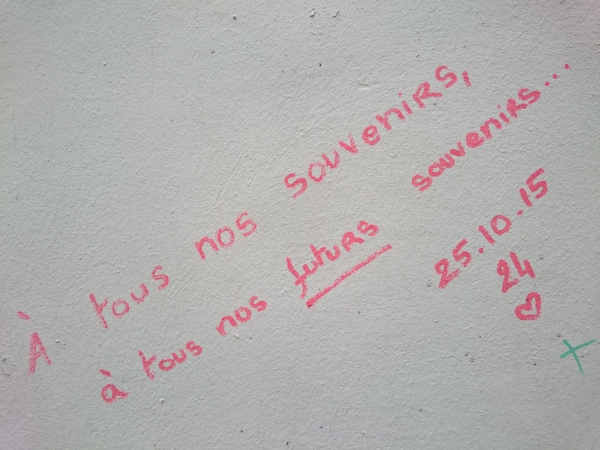 À tous nos souvenirs,
à tous nos futurs souvenirs...
25.10.15
24